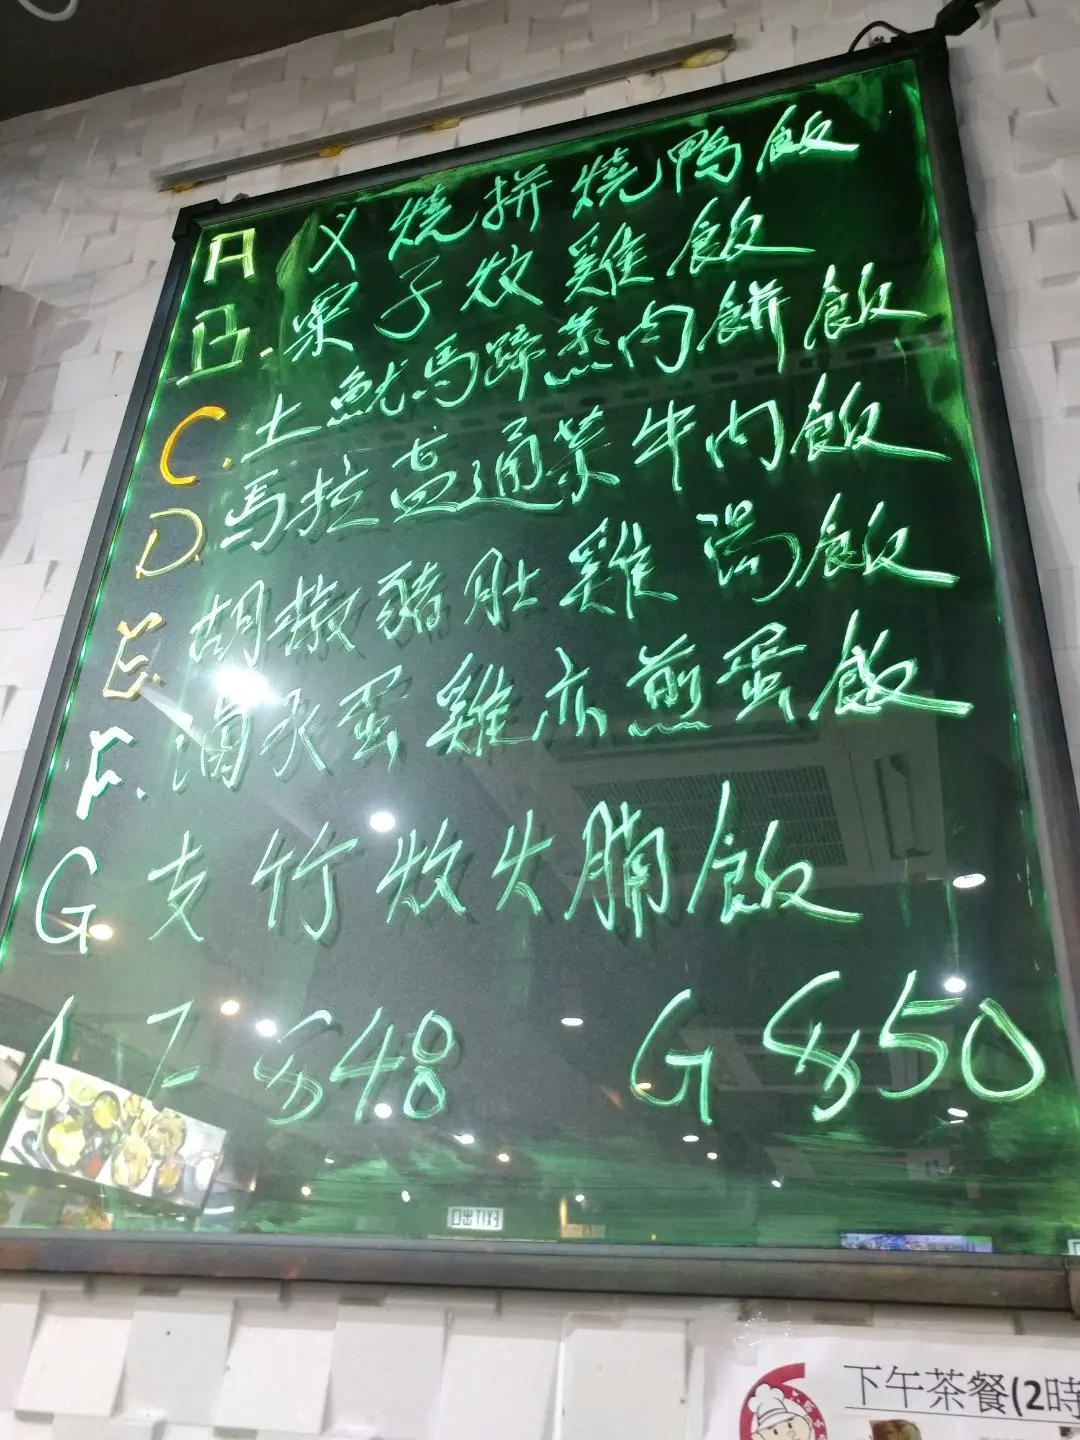 A 义燒拼燒鴨飯
B. 栗子炆雞飯
C. 土魷馬蹄蒸肉餅飯
D. 馬拉盞通菜牛肉飯
E. 胡椒豬肚雞湯飯
F. 滷水蛋雞亦煎蛋飯
G 支竹炆火腩飯
A Z $48 G $50
EXIT出口
下午茶餐(2時